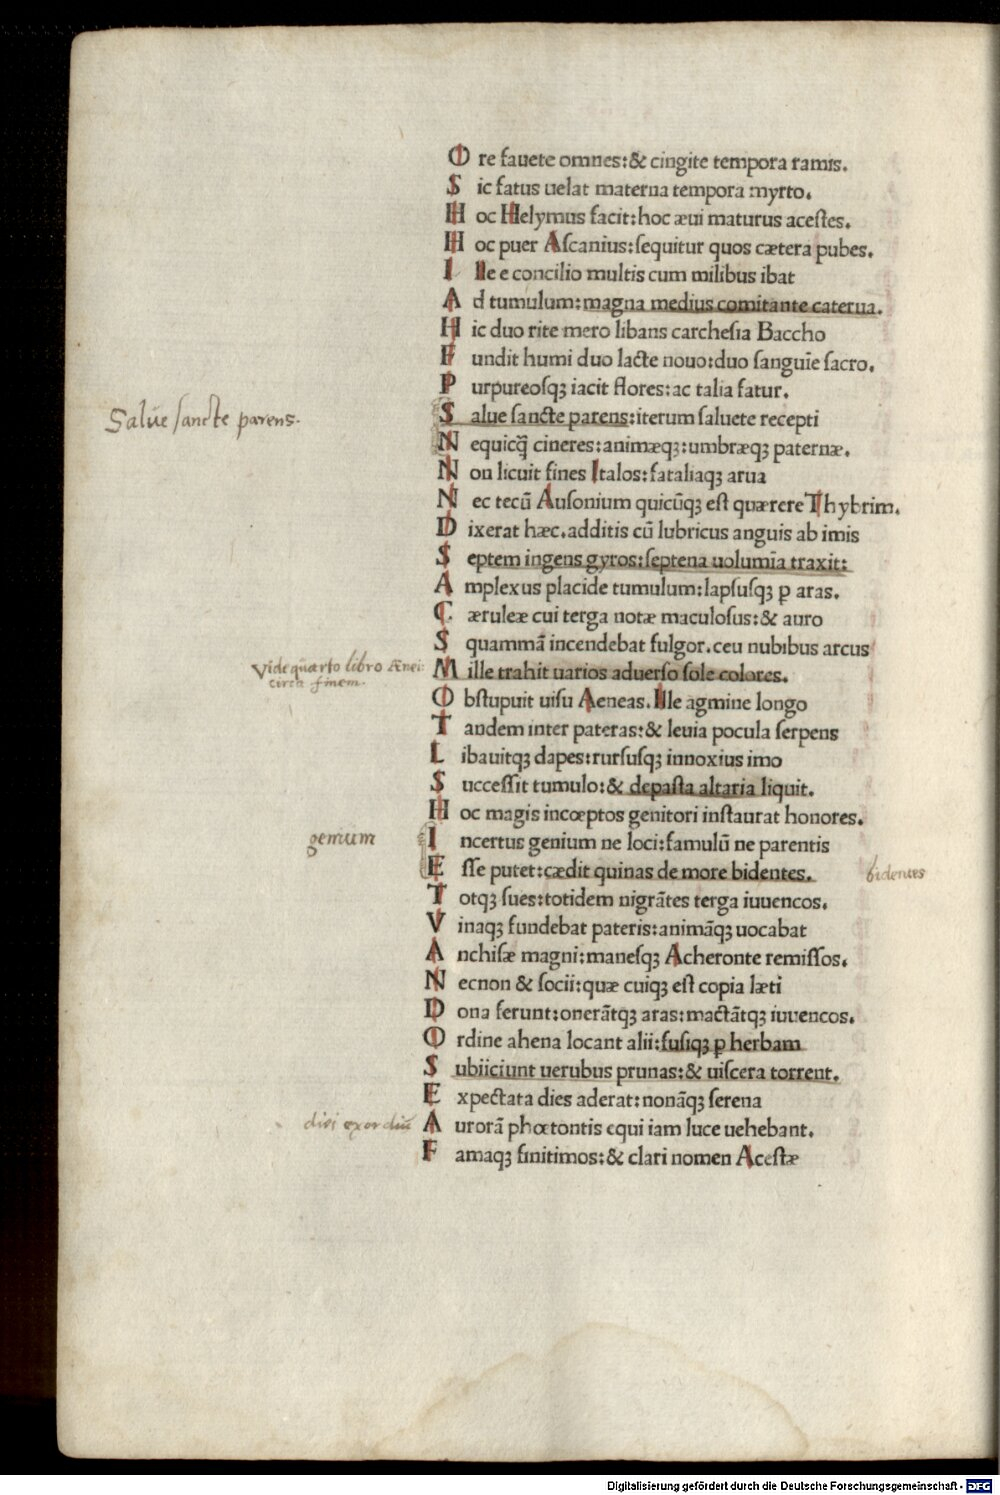 Ore fauete omnes:& cingite tempora ramis.
Sic fatus uelat materna tempora myrto.
Hoc Helymus facit:hoc æui maturus acestes.
Hoc puer Ascanius:sequitur quos cætera pubes.
Ille e concilio multis cum milibus ibat
Ad tumulum:magna medius comitante caterua.
Hic duo rite mero libans carchesia Baccho
Fundit humi duo lacte nouo:duo sanguīe sacro.
Purpureosqꝫ iacit flores:ac talia fatur.
Salue sancte parens.
Salue sancte parens:iterum saluete recepti
Nequicq̄ cineres:animæqꝫ:umbræqꝫ paternæ.
Non licuit fines Italos:fataliaqꝫ arua
Nec tecū Ausonium quicūqꝫ est quærere Thybrim.
Dixerat hæc.additis cū lubricus anguis ab imis
Septem ingens gyros:septena uolumīa traxit:
Amplexus placide tumulum:lapsusqꝫ ꝑ aras.
Cæruleæ cui terga notæ maculosus:& auro
Squammā incendebat fulgor.ceu nubibus arcus
Vide quarto libro Ænei:
circa finem.
Mille trahit uarios aduerso sole colores.
Obstupuit uisu Aeneas.Ille agmine longo
Tandem inter pateras:& leuia pocula serpens
Libauitqꝫ dapes:rursusqꝫ innoxius imo
Successit tumulo:& depasta altaria liquit.
Hoc magis incœptos genitori instaurat honores.
genium
Incertus genium ne loci:famulū ne parentis
Esse putet:cædit quinas de more bidentes.
bidentes
Totqꝫ sues:totidem nigrātes terga iuuencos.
Vinaqꝫ fundebat pateris:animāqꝫ uocabat
Anchisæ magni:manesqꝫ Acheronte remissos.
Necnon & socii:quæ cuiqꝫ est copia læti
Dona ferunt:onerātqꝫ aras:mactātqꝫ iuuencos.
Ordine ahena locant alii:fusiqꝫ ꝑ herbam
Subiiciunt uerubus prunas:& uiscera torrent.
Expectata dies aderat:nonāqꝫ serena
diei exordiū
Aurorā phœtontis equi iam luce uehebant.
Famaqꝫ finitimos:& clari nomen Acestæ
Digitalisierung gefördert durch die Deutsche Forschungsgemeinschaft - DFG